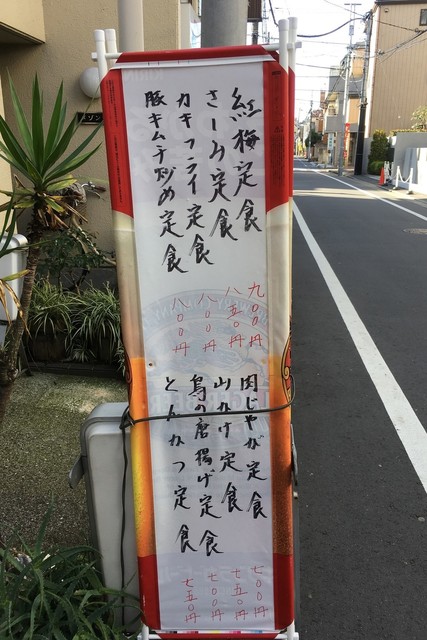 紅梅定食 九〇〇円
さしみ定食 八五〇円
カキフライ定食 八〇〇円
豚キムチ炒め定食 八〇〇円
肉じゃが定食 七〇〇円
山かけ定食 七五〇円
鳥の唐揚げ定食 七〇〇円
とんかつ定食 七五〇円